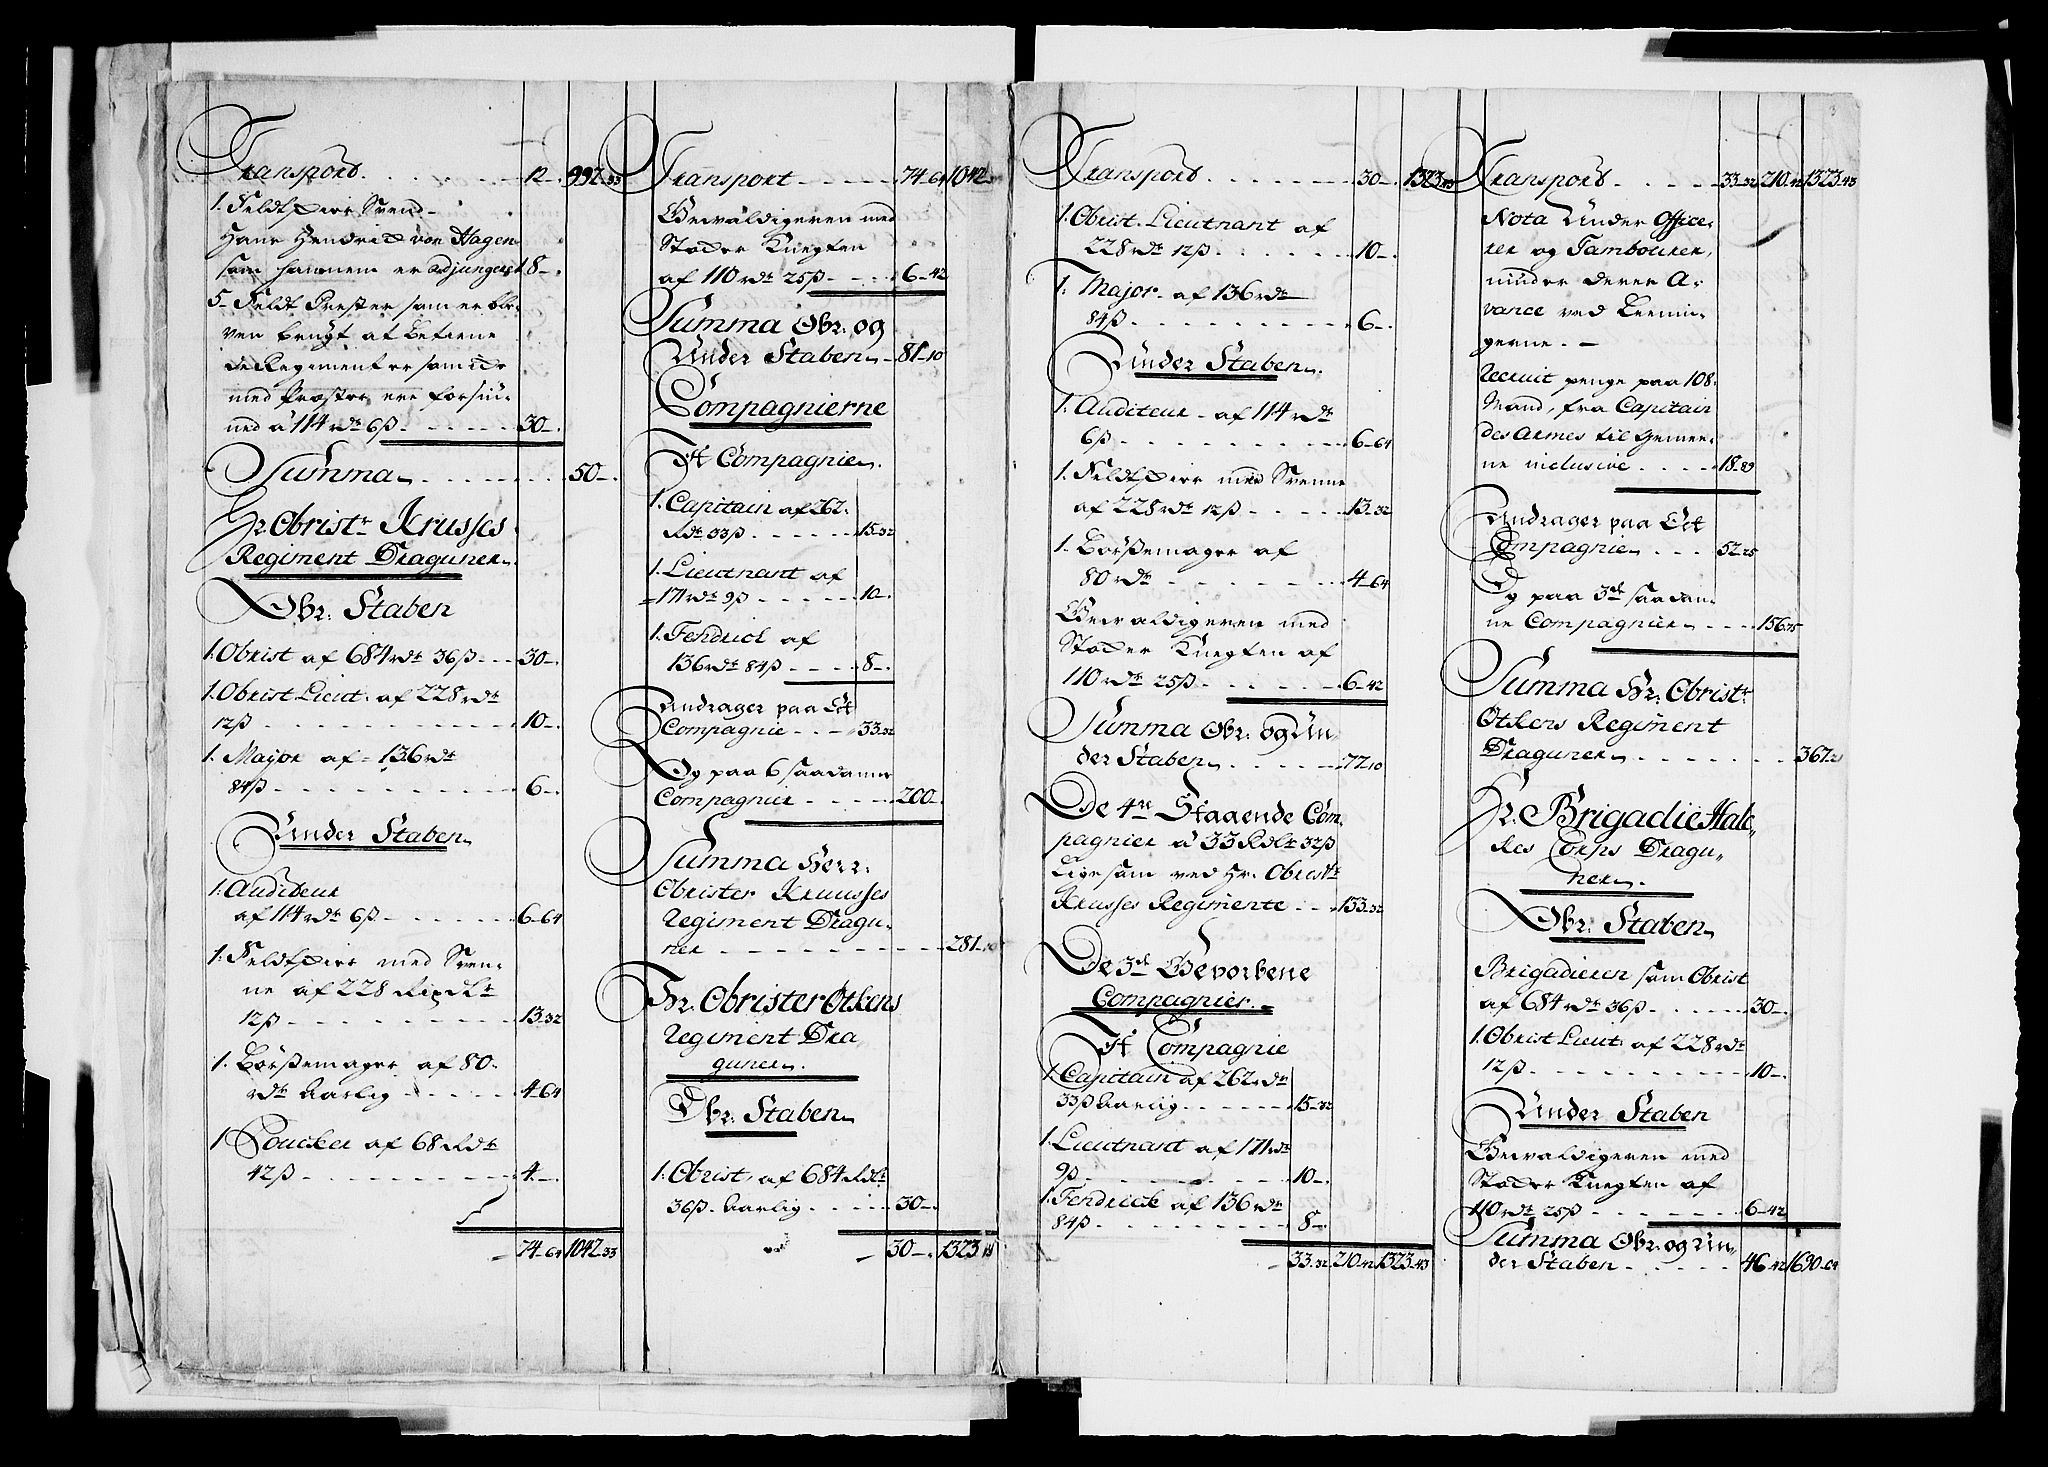 Transport . . . . . . 12 -. 992.33
1. Feldtskier Svend
Hans Hendrich von Hagen
som hannem er adjungert 8 -.
5 - Feldt Prester som er ble-
ven brugt at betiene
de Regimenter som icke
med Præster ere forsiu-
ned á 114 rdr 6ß - - - - - - 30 -.
Summa - - - - - - 50 -.
Hr. Obristr Krusses
Regiment Draguner
Obr: Staben
1. Obrist af 684 rdr 36ß - - - 30 -.
1. Obrist Lieut: af 228 rdr
12ß - - - - - - 10 -.
1. Major af 136 rdr
84ß - - - - - - 6 -.
Under Staben
1. Auditeur
af 114 rdr 6ß - - - - - - 6 - 64
1. Feldtskier med Sven-
ne af 228 Rixdlr
12ß - - - - - - 13 - 32
1. Børssemager af 80
rdr Aarlig - - - - - 4 - 64
1 Poucker af 68 Rdr
42ß - - - - - - 4 -.
- 74 - 64 1042 - 33
Transport - - - - - 74 - 64 1042
Gewaldigeren med
Stocker Knegten
af 110 rdr 25ß - - - - 6 - 42
Summa Obr: og
Under Staben - 81 - 10
Compagnierne
It Compagnie.
1. Capitain af 262
Rdr 33ß - - - - - - 15 - 32
1. Lieutnant af
171 rdr 9ß - - - - - 10 -.
1. Fendrich af
136 rdr 84ß - - - - 8 -.
Andrager paa Eet
Compagnie - - - 33 - 32
Og paa 6 saadanne
Compagnier - - - - 200 -.
Summa Herr
Obrister Kruusses
Regiment Dragu-
ner - - - - - - 281 - 10
Hr. Obrister Ötkens
Regiment Dra
guner.
Obr: Staben
1. Obrist, af 684 Rdlr
36ß - Aarlig - - - - - 30 -.
- 30 -. 1323
Transport - - - - - - 30 -. 1323 - 43
1. Obrist Lieutnant af
228 rdr 12ß - - - - - - 10 -.
1. Major af 136 rdr
84ß - - - - - - 6 -.
Under Staben.
1. Auditeur - af 114 rdr
6ß - - - - - - 6 - 64
1. Feldtskier med Svenne
af 228 rdr 12ß - - - - - 13 - 32
1. Børssemager af
80 rdr - - - - - - 4 - 64
Gewaldigeren med
Stocker Knegten af
110 rdr 25ß - - - - - 6 - 42
Summa Obr: og Un-
der Staben - - - - - 77 - 10
De 4re Staaende Com-
pagnier á 33 Rdlr 32ß
Ligesom ved Hr. Obristr
Krusses Regimente - - - 133 - 32
De 3de Gevorbene
Compagnier.
It Compagnie
1. Capitain af 262 rdr
33ß Aarlig - - - - - - 15 - 32
1. Lieutnant af 171 rdr
9ß - - - - - - 10 -.
1. Fendrick af 136 rdr
84ß - - - - - - 8 -.
- 33 - 32 210 - 42 1323 - 43
3
Transport - - - - - 33 - 32 210 - 42 1323 - 43
Nota Under Office-
rer og Tambourer,
minder deres A-
vance ved
gerne. -
Recruit penge paa 108.
Mand, fra Capitain
des Armes til Gemee-
ne inclusive - - - - 18 - 89
Andrager paa Eet
Compagnie - - - 52 - 25
Og paa 3de saadan-
ne Compagnier - - - - 156 - 75
Summa Hr. Obristr
Ötkens Regiment
Draguner - - - - - - 367 - 21
Hr. Brigadie
Corps Dragu-
ner.
Obr: Staben
Brigadieren som Obrist
af 684 rdr 36ß - - - - - - 30 -.
1. Obrist Lieut: af 228 rdr
12ß - - - - - - 10 -.
Under Staben
Gewaldigeren med
Stocker Knegten af
110 rdr 25ß - - - - - - 6 - 42
Summa Obr: og Un-
der Staben - - - - - 46 - 42 1690 - 64